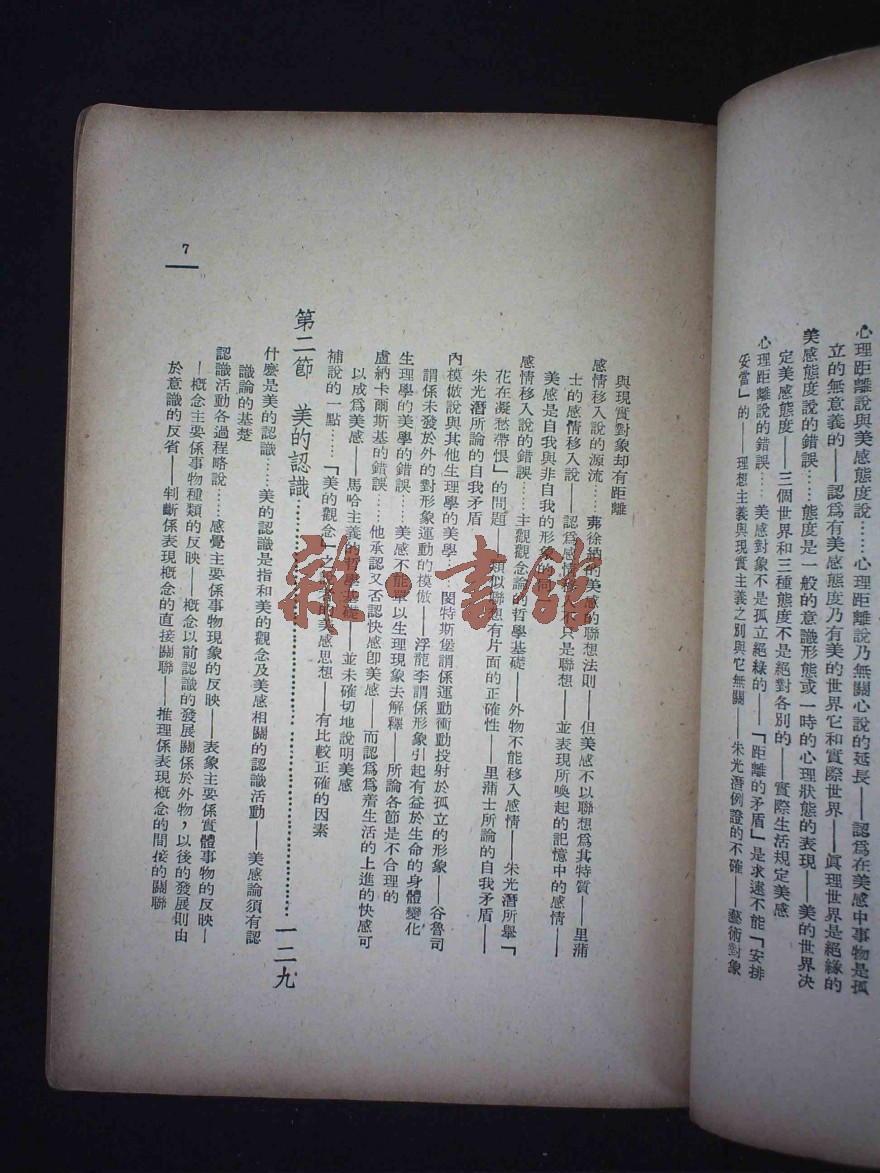 心理距離說與美感態度說……心理距離說乃無關心說的延長——認爲在美感中事物是孤
立的無意義的——認爲有美感態度乃有美的世界它和實際世界——眞理世界是絕緣的
美感態度說的錯誤……態度是一般的意識形態或一時的心理狀態的表現——美的世界決
定美感態度——三個世界和三種態度不是絕對各別的——實際生活規定美感
心理距離說的錯誤……美感對象不是孤立絕緣的——「距離的矛盾」是求遠不能「安排
妥當」的——理想主義與現實主義之別與它無關——朱光潛例證的不確——藝術對象
與現實對象却有距離
感情移入說的源流……茀徐納的美感的聯想法則——但美感不以聯想爲其特質——里蒲
士的感情移入說——認爲感情移入不只是聯想——並表現所喚起的記憶中的感情——
美感是自我與非自我的形象的同
感情移入說的錯誤……主觀觀念論的哲學基礎——外物不能移入感情——朱光潛所舉「
花在凝愁帶恨」的問題——類似聯想有片面的正確性——里蒲士所論的自我矛盾——
朱光潛所論的自我矛盾
內模倣說與其他生理學的美學……閔特斯堡謂係運動衝動投射於孤立的形象——谷魯司
謂係未發於外的對形象運動的模倣——浮龍李謂係形象引起有益於生命的身體變化
生理學的美學的錯誤……美感不能單以生理現象去解釋——所論各節是不合理的
盧納卡爾斯基的錯誤……他承認又否認快感卽美感——而認爲爲着生活的上進的快感可
以成爲美感——馬哈主義的哲學基礎——並未確切地說明美感
補說的一點……「美的觀念」之 者的美感思想——有比較正確的因素
第二節 美的認識……一二九
什麽是美的認識……美的認識是指和美的觀念及美感相關的認識活動——美感論須有認
識論的基楚
認識活動各過程略說……感覺主要係事物現象的反映——表象主要係實體事物的反映—
—概念主要係事物種類的反映——概念以前認識的發展關係於外物，以後的發展則由
於意識的反省——判斷係表現概念的直接關聯——推理係表現概念的間接的關聯
7
雜·書館